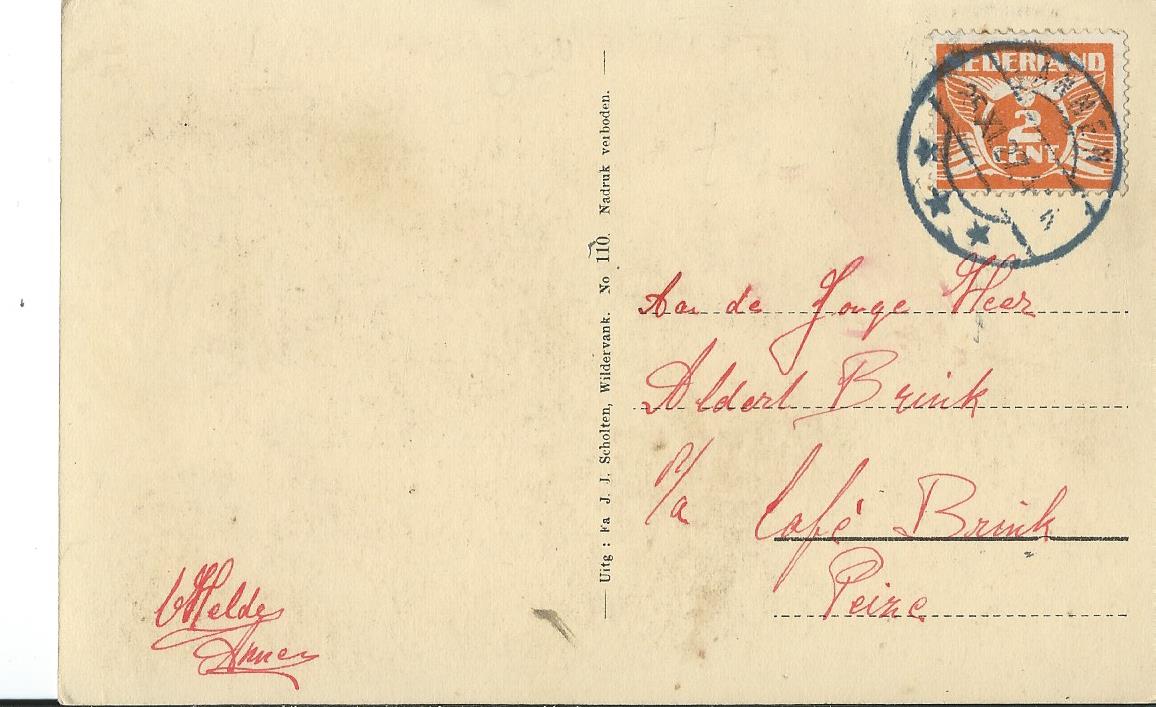 NEDERLAND
2
CENT
ANNEN
Uitg : Fa J. J. Scholten, Wildervank. No 110. Nadruk verboden.
Aan de Jonge Heer
Aldert Brink
P/a Café Brink
Peize
Annen